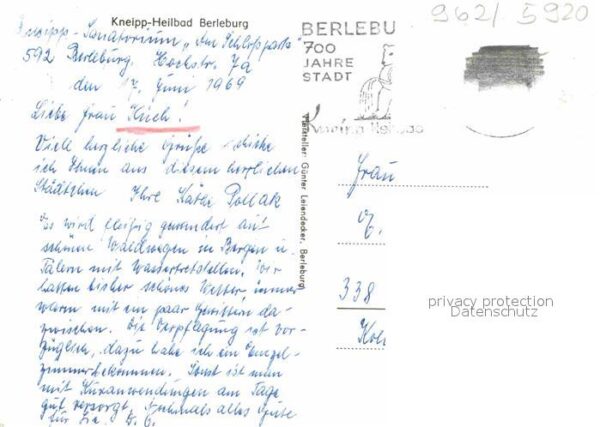 962/ 5920
Kneipp-Heilbad Berleburg
Kneipp-Sanatorium "Am Schloßpark"
592 Berleburg. Hochstr. 7a
den 17. Juni 1969
BERLEBU
700
JAHRE
STADT
Liebe Frau Kuch!
Viele herzliche Grüße schicke
ich Ihnen aus diesem herrlichen
Städtchen Ihre Käthe Pollak
Es wird fleißig gewandert auf
schönen Waldwegen in Bergen u.
Tälern mit Wassertretstellen. Wir
hatten bisher schönes Wetter, immer
warm mit ein paar Gewittern da-
zwischen. Die Verpflegung ist vor-
züglich, dazu habe ich ein Einzel-
zimmer bekommen. Sonst ist man
mit Kuranwendungen am Tage
gut versorgt. Nochmals alles Gute
für Sie.
Hersteller: Günter Leiendecker, Berleburg
Frau
338
privacy protection
Datenschutz